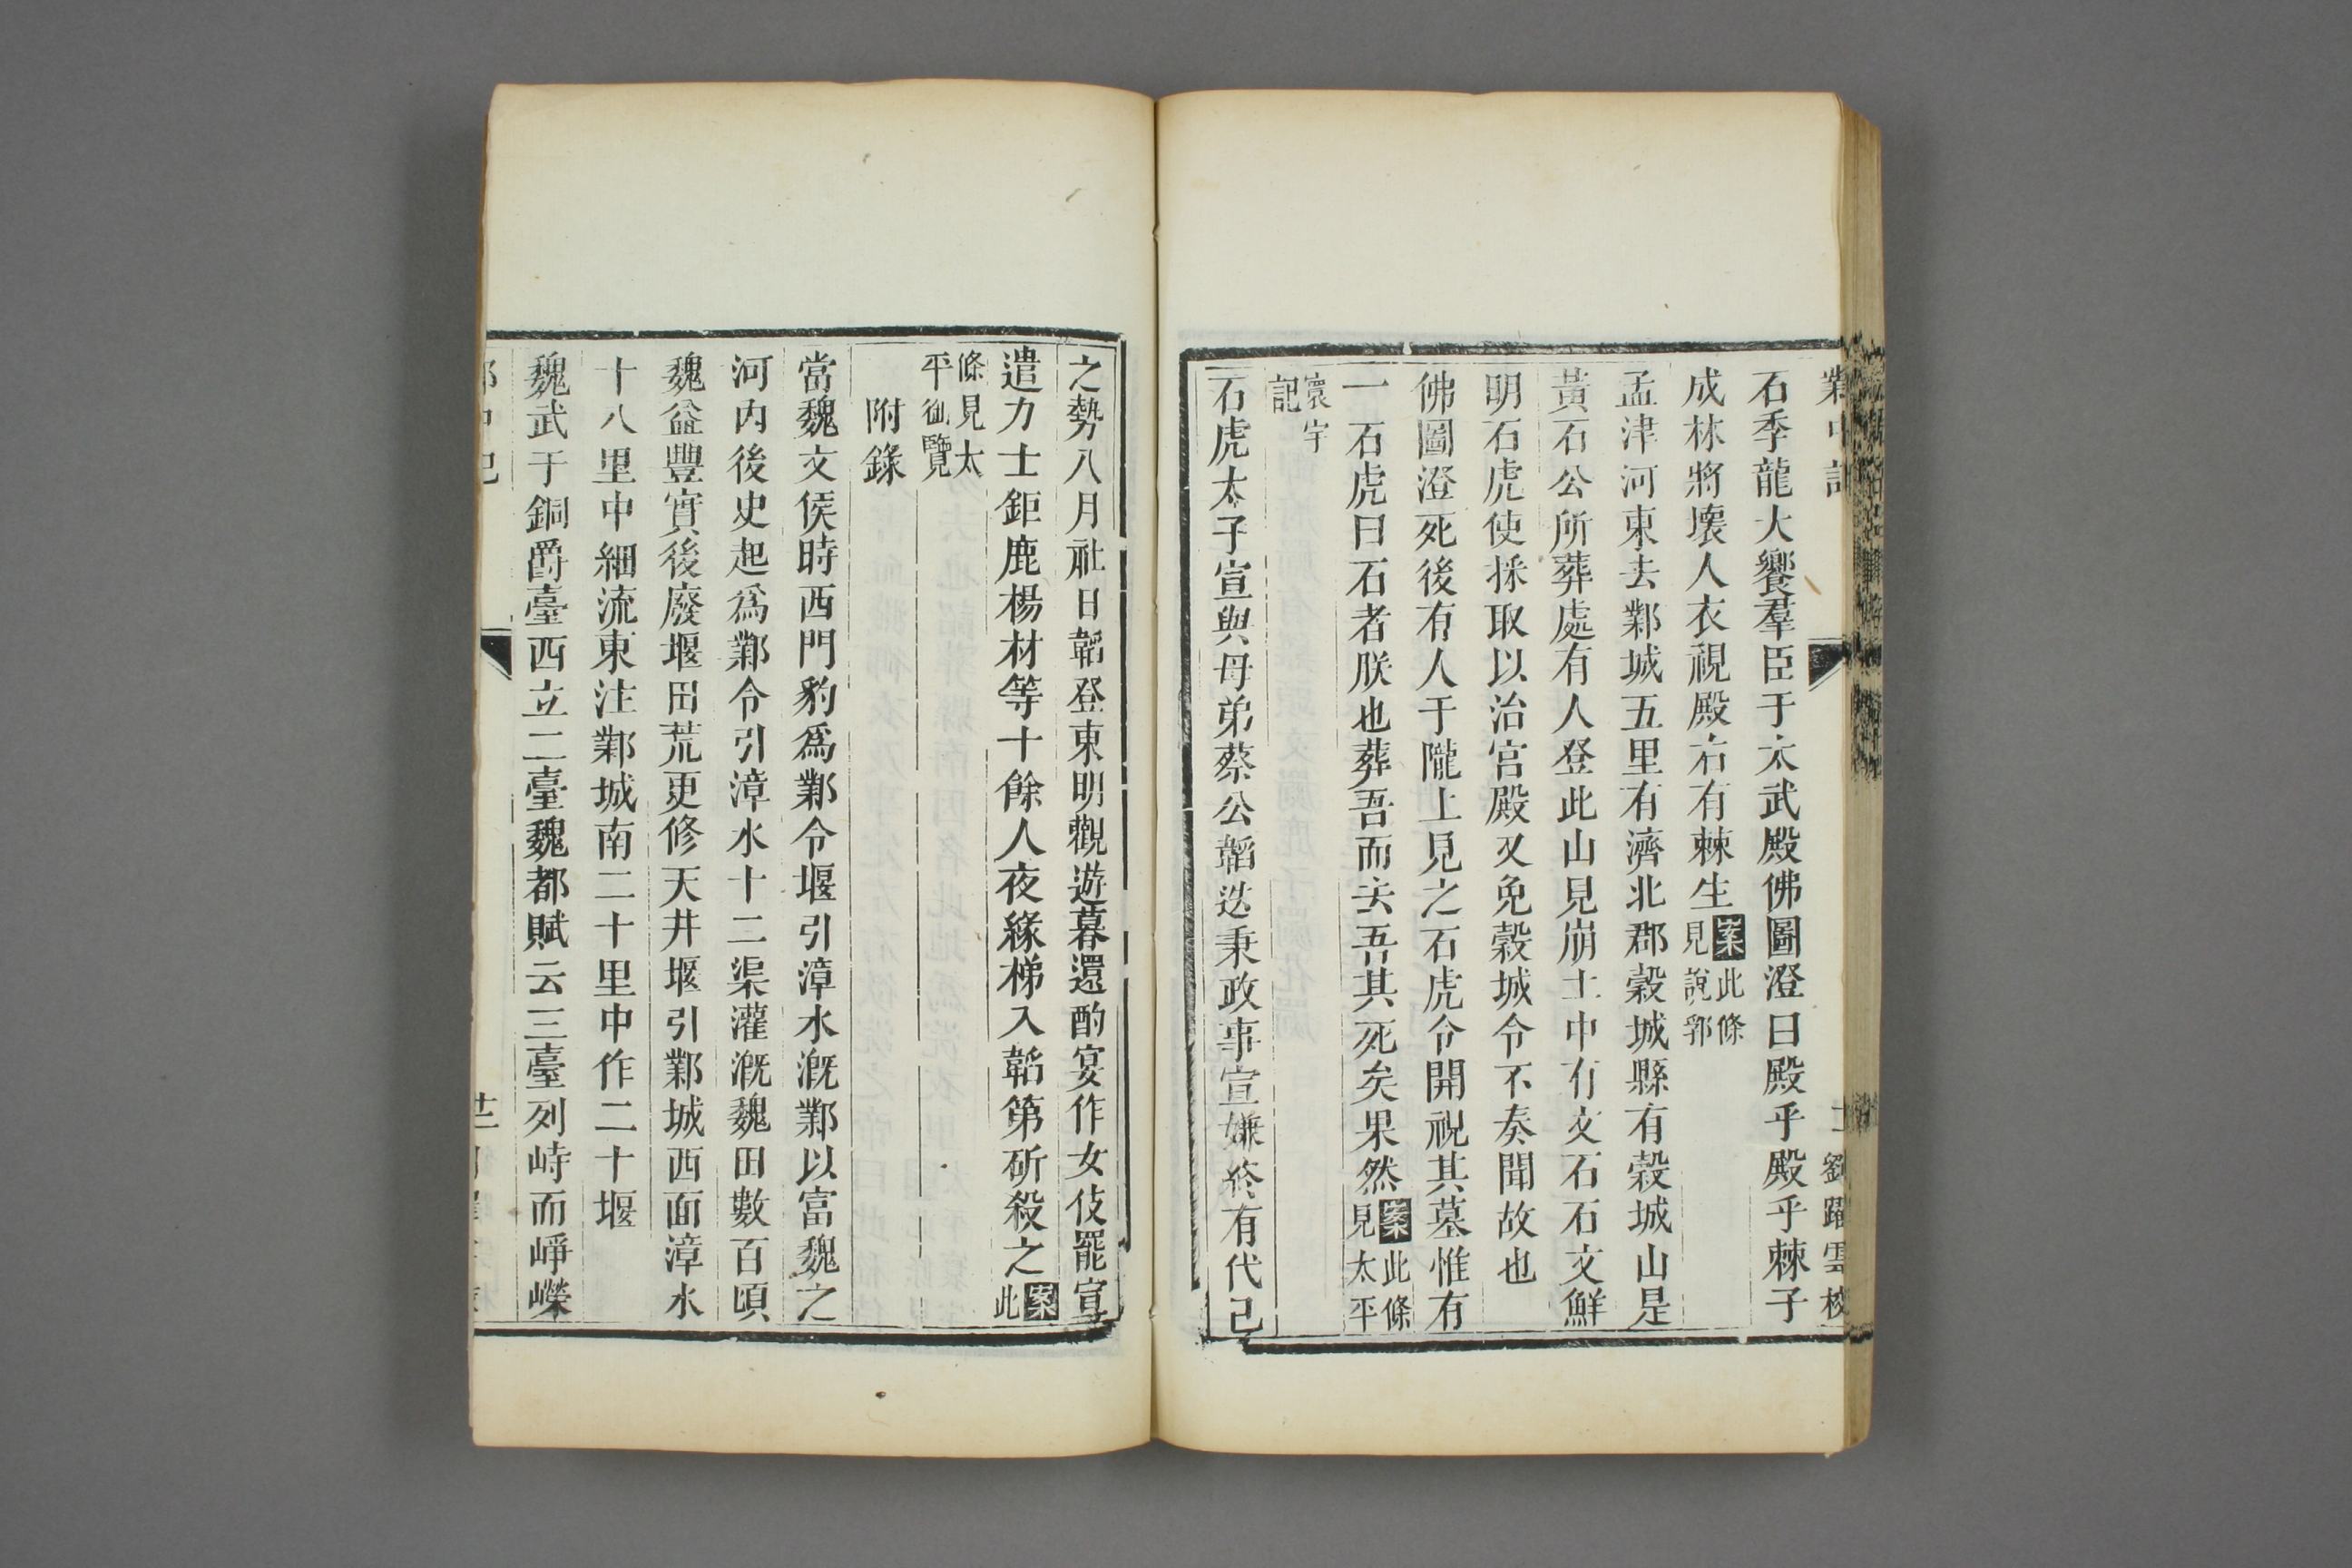 鄴中記
劉躍雲校
石季龍大饗羣臣于太武殿佛圖澄曰殿乎殿乎棘子
成林將壞人衣視殿右有棘生案此條見說郛
孟津河東去鄴城五里有濟北郡穀城縣有穀城山是
黃石公所葬處有人登此山見崩土中有文石石文鮮
明石虎使採取以治宮殿又免穀城令不奏聞故也
佛圖澄死後有人于隴上見之石虎令開視其墓惟有
一石虎曰石者朕也葬吾而去吾其死矣果然案此條見太平
寰宇記
石虎太子宣與母弟蔡公韜迭秉政事宣嫌終有代己
之勢八月社日韜登東明觀遊暮還酌宴作女伎罷宣
遣力士鉅鹿楊材等十餘人夜緣梯入韜第斫殺之案此
條見太平御覽
附錄
當魏文侯時西門豹爲鄴令堰引漳水漑鄴以富魏之
河內後史起爲鄴令引漳水十二渠灌漑魏田數百頃
魏益豐實後廢堰田荒更修天井堰引鄴城西面漳水
十八里中細流東注鄴城南二十里中作二十堰
魏武于銅爵臺西立二臺魏都賦云三臺列峙而崢嶸